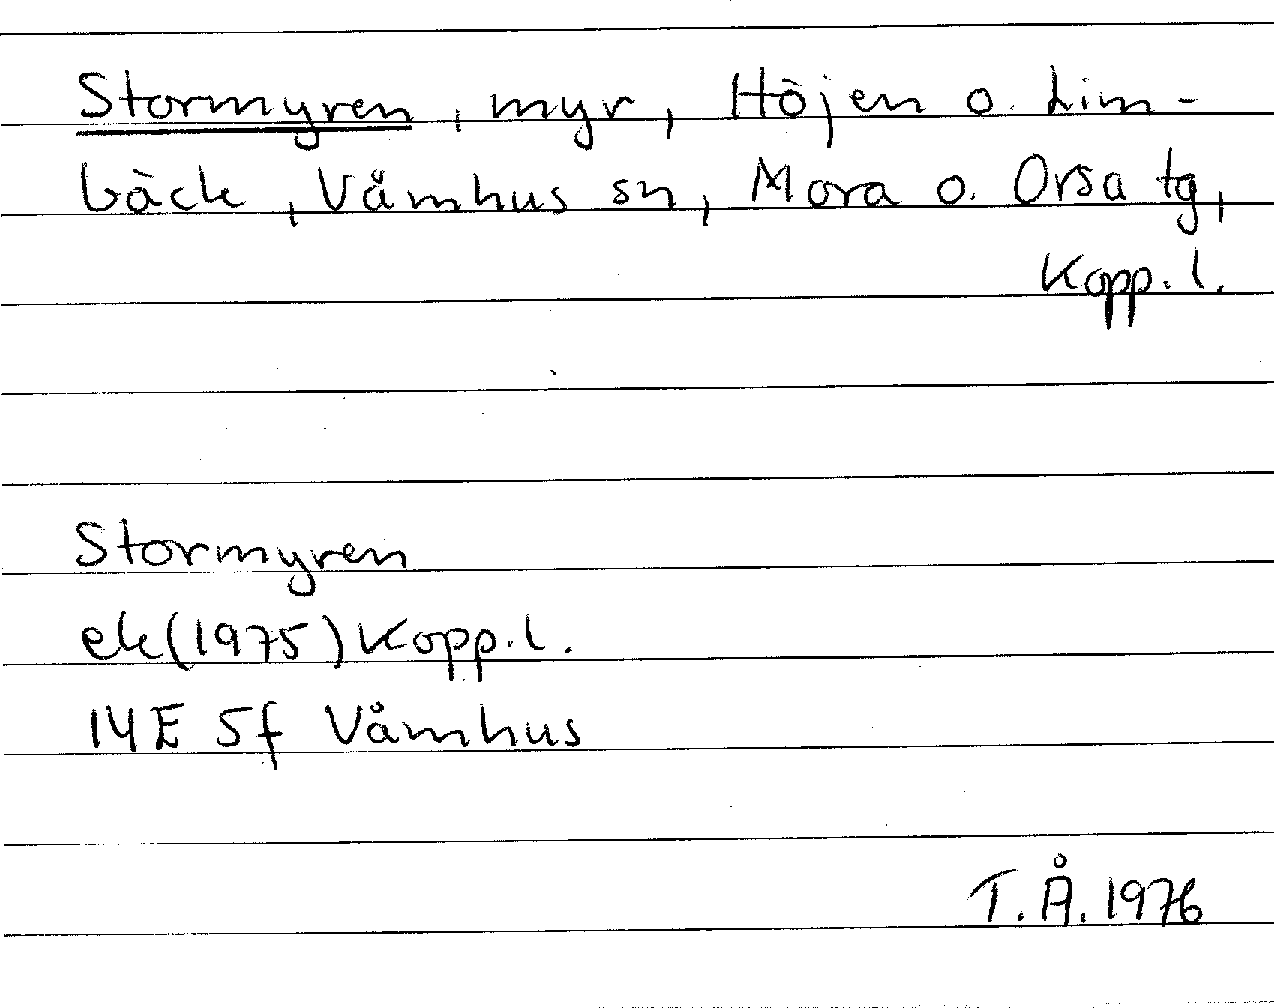 Stormyren, myr, Höjen o. Lim-
bäck, Våmhus sn, Mora o. Orsa tg,
Kopp. l.
Stormyren
ek(1975) Kopp. l.
14E 5f Våmhus
T. Å. 1976